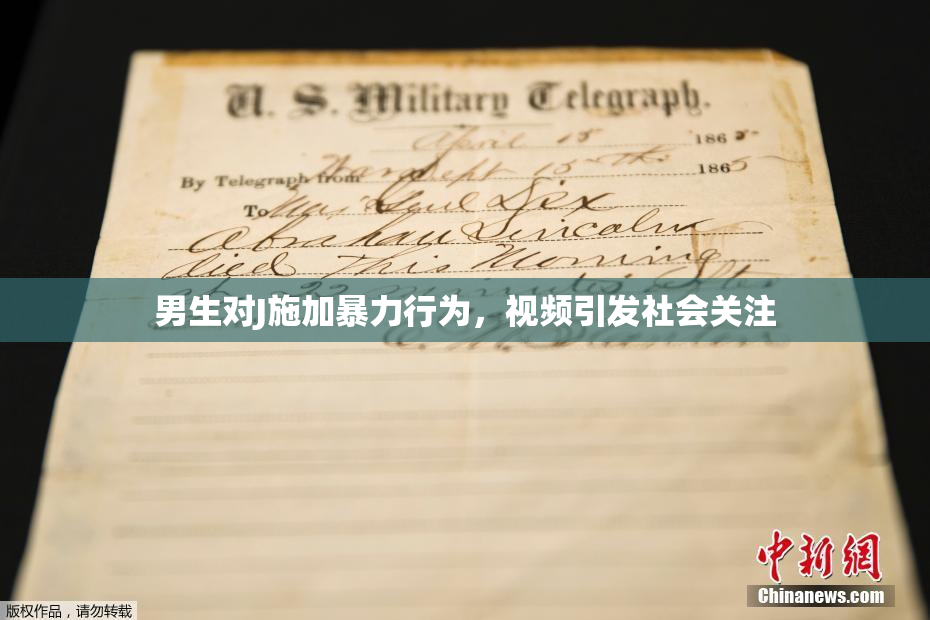 U. S. Military Telegraph.
April 15 1865-
By Telegraph from War Dept 15th 1865
To Maj Genl Dix
Abraham Lincoln
died This Morning
at 22 minutes after
男生对J施加暴力行为，视频引发社会关注
E. M. Stanton
中新网
Chinanews.com
版权作品，请勿转载